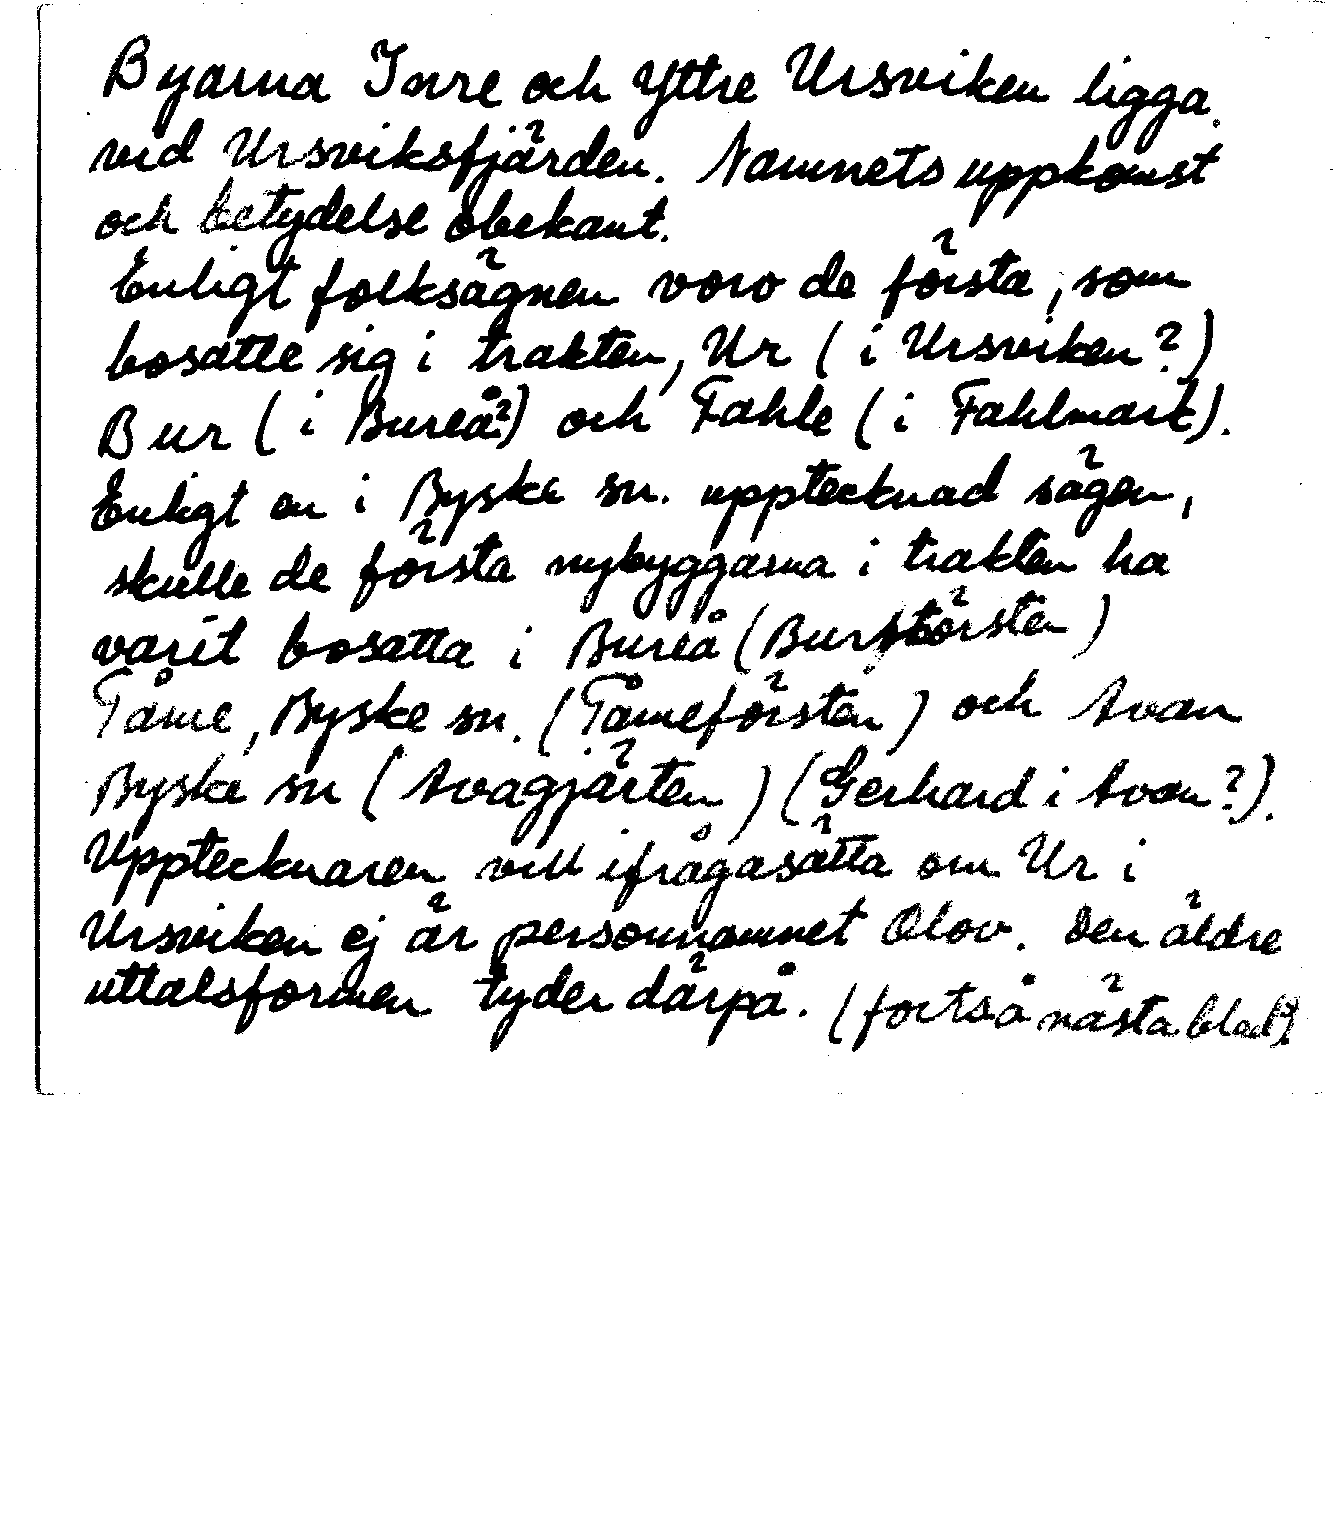 Byarna Inre och Yttre Ursviken ligga
vid Ursviksfjärden. Namnets uppkomst
och betydelse obekant.
Enligt folksägnen voro de första, som
bosatte sig i trakten, Ur (i Ursviken?)
Bur (i Bureå?) och Fahle (i Fahlmark).
Enligt en i Byske sn. upptecknad sägen,
skulle de första nybyggarna i trakten ha
varit bosatta i Bureå (Burstörsten)
Tåme, Byske sn. (Tåmeförsten) och Avan
Byske sn (Avagjärten) (Gerhard i Avan?).
Upptecknaren vill ifrågasätta om Ur i
Ursviken ej är personnamnet Olov. Den äldre
uttalsformen tyder därpå. (forts å nästa blad).